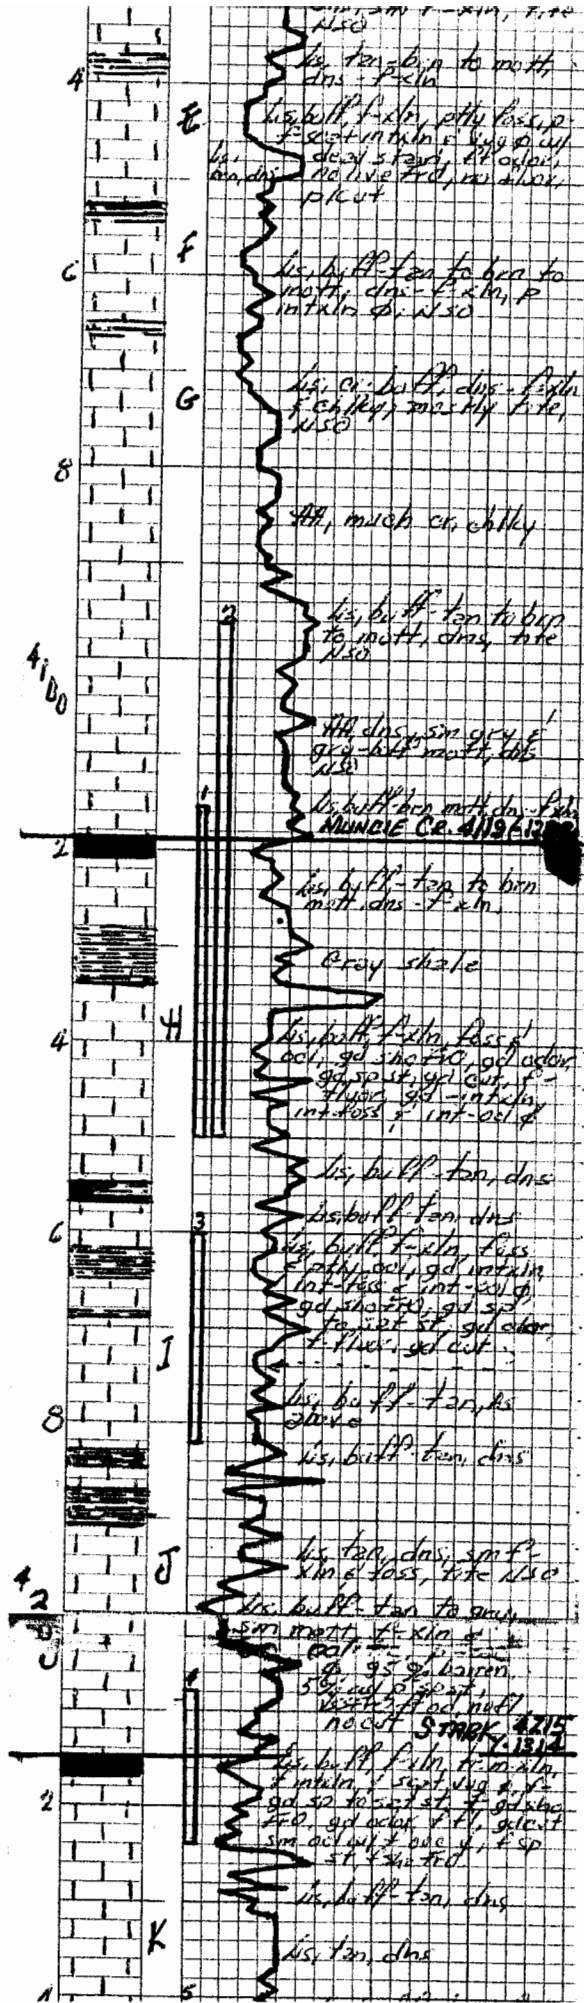 NSO
Ls, tan-brn to mott,
dns-f-xln
4
E
Ls, buff, f-xln, ptly foss, p-
f-scat intxln & vug φ w/
dead stain, ft odor,
no live fro, no fluor,
p/cut
Ls,
brn, dns
F
6
Ls, buff-tan to brn to
mott, dns-f-xln, p
intxln φ, NSO
G
Ls, cr-buff, dns-f-xln
& chlky, mostly tite,
NSO
8
AA, much cr, chlky
2
Ls, buff-tan to brn
to mott, dns, tite
NSO
4100
AA, dns, sm gry &
gry-buff mott, dns
NSO
1
Ls, buff-brn mott, dns-f-xln
MUNCIE CR. 4119
2
Ls, buff-tan to brn
mott, dns-f-xln,
Gray shale
H
4
Ls, buff, f-xln, foss &
ool, gd sho fro, gd odor,
gd sp st, gd cut, f-
fluor, gd-intxln,
int-foss & int-ool φ
Ls, buff-tan, dns
Ls, buff-tan, dns
6
3
Ls, buff, f-xln, foss
& ptly ool, gd intxln,
int-foss & int-ool φ,
gd sho fro, gd sp
to sat st, gd odor,
f fluor, gd cut
I
8
Ls, buff-tan, As
above
Ls, buff-tan, dns
J
Ls, tan, dns, sm f-
xln & foss, tite NSO
4200
Ls, buff-tan to gray,
sm mott, f-xln &
barren
4
no cut
STARK 4215
Ls, buff, f-xln, tr m xln,
f intxln, f scat vug φ, f-
gd sp to sat st, f-gd sho
fro, gd odor, f fl, gd cut
2
st, f sho fro
Ls, buff-tan, dns
K
Ls, tan, dns
4
5